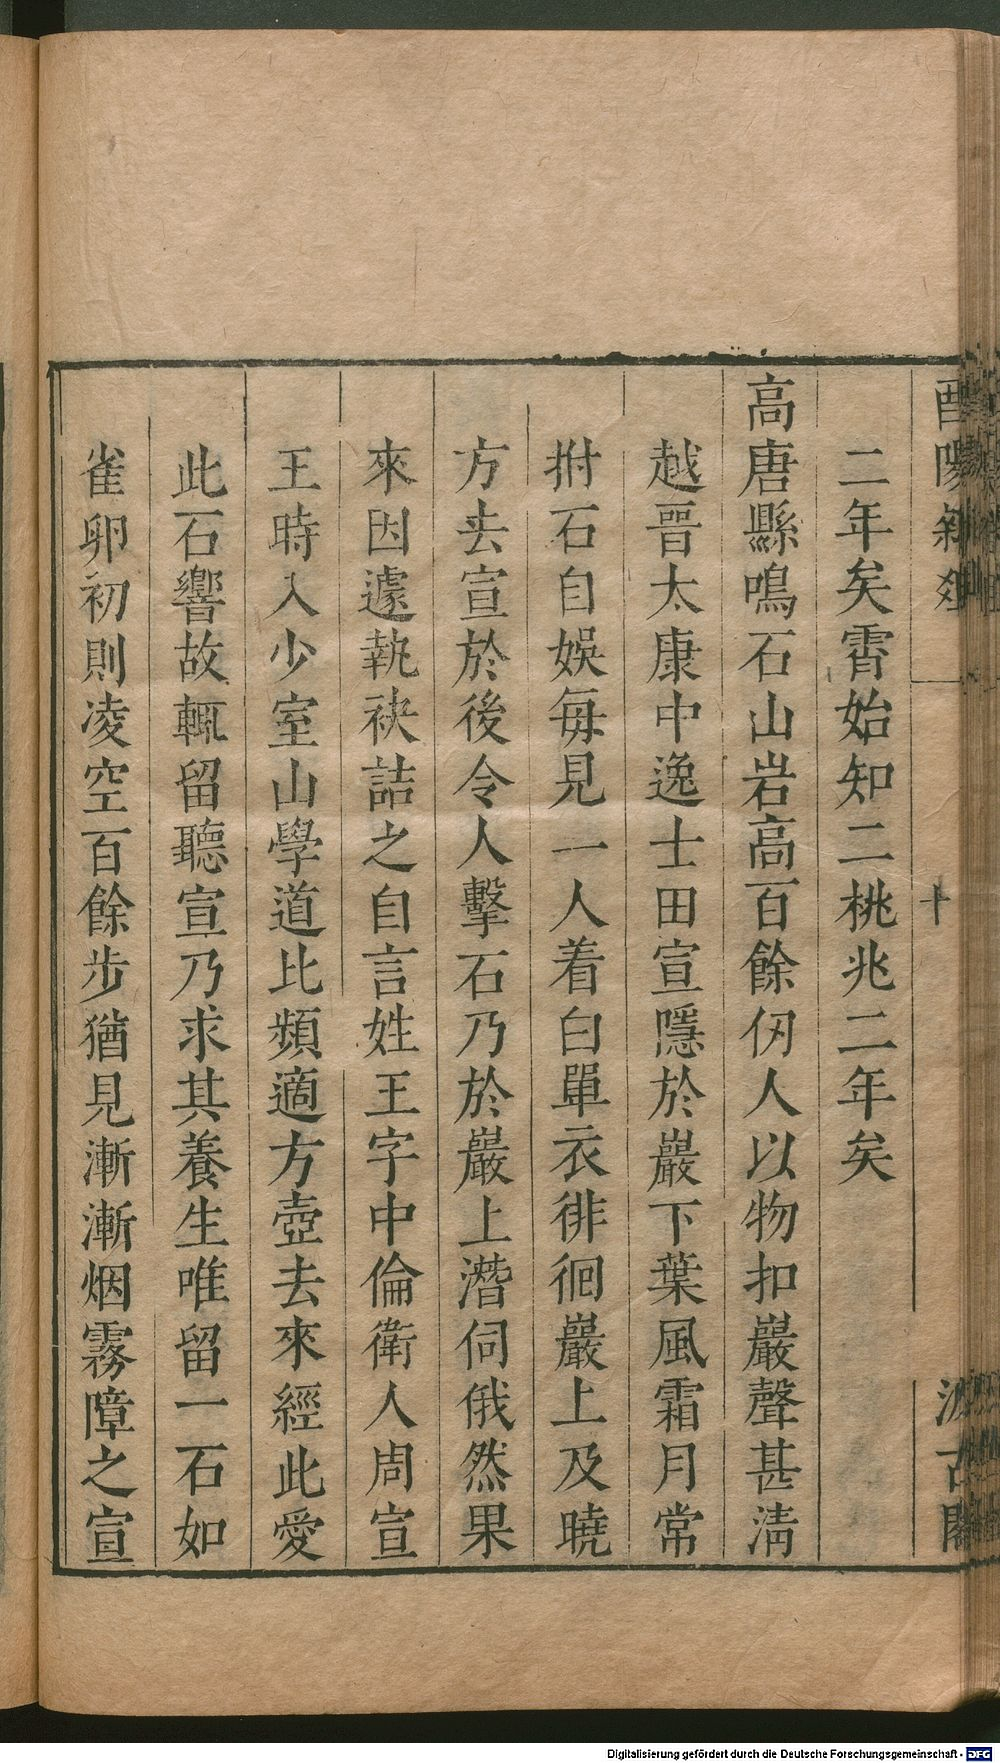 酉陽雜俎
十
汲古閣
二年矣霄始知二桃兆二年矣
高唐縣鳴石山岩高百餘仞人以物扣巖聲甚淸
越晉太康中逸士田宣隱於巖下葉風霜月常
拊石自娛每見一人着白單衣徘徊巖上及曉
方去宣於後令人擊石乃於巖上潛伺俄然果
來因遽執袂詰之自言姓王字中倫衛人周宣
王時入少室山學道比頻適方壺去來經此愛
此石響故輒留聽宣乃求其養生唯留一石如
雀卵初則凌空百餘步猶見漸漸烟霧障之宣
Digitalisierung gefördert durch die Deutsche Forschungsgemeinschaft - DFG